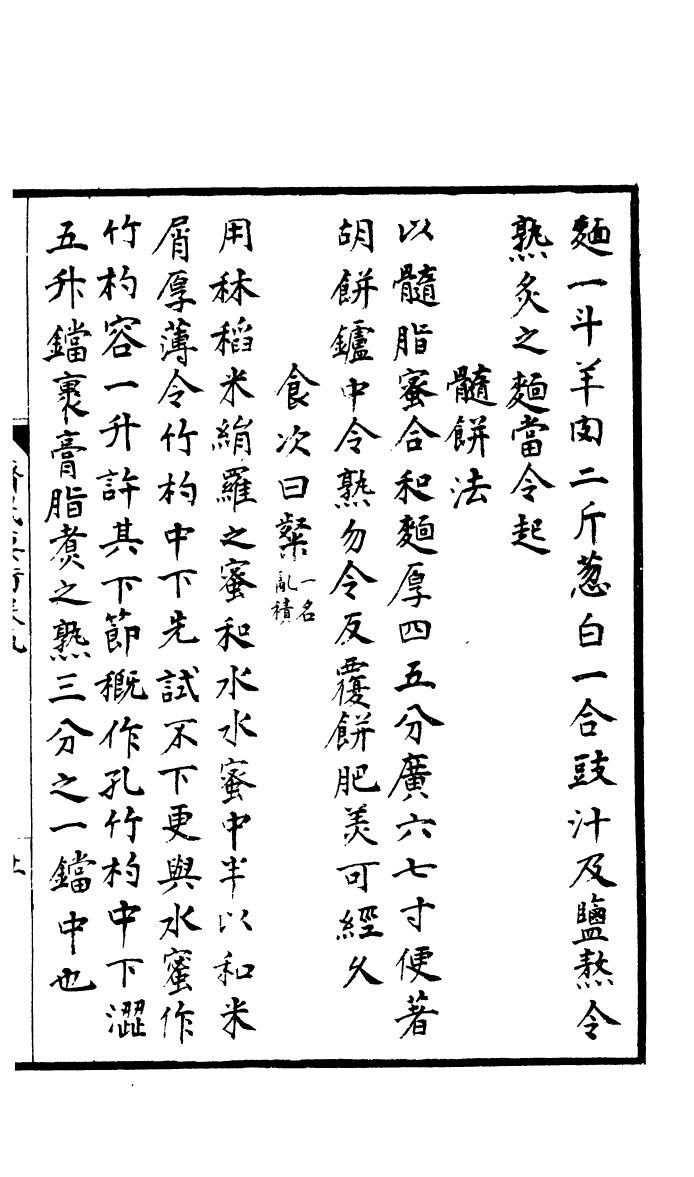 麵一斗羊肉二斤葱白一合豉汁及鹽熬令
熟炙之麵當令起
髓餅法
以髓脂蜜合和麵厚四五分廣六七寸便著
胡餅鑪中令熟勿令反覆餅肥美可經久
食次曰粲一名亂積
用秫稻米絹羅之蜜和水水蜜中半以和米
屑厚薄令竹杓中下先試不下更與水蜜作
竹杓容一升許其下節槪作孔竹杓中下澀
五升鐺裹膏脂煑之熟三分之一鐺中也